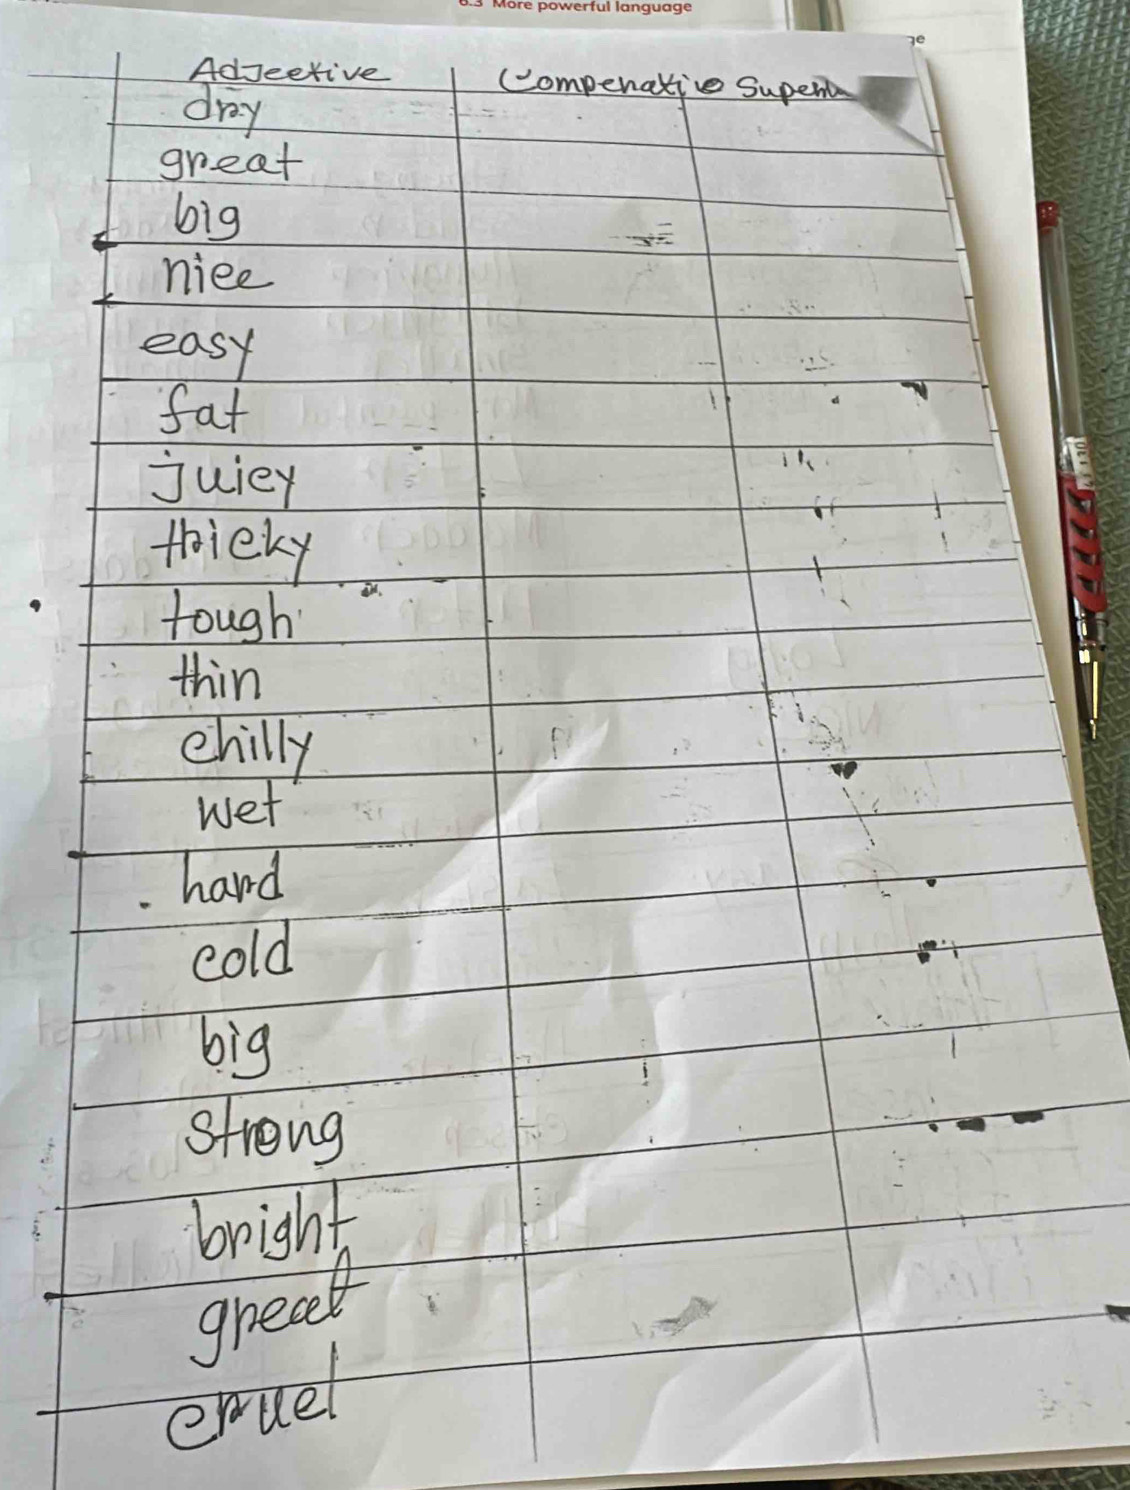 6.3 More powerful language
ge
Adjective Comperative Superl
dry
great
big
nice
easy
fat
juicy
tricky
tough
thin
chilly
wet
hard
cold
big
strong
bright
great
cruel